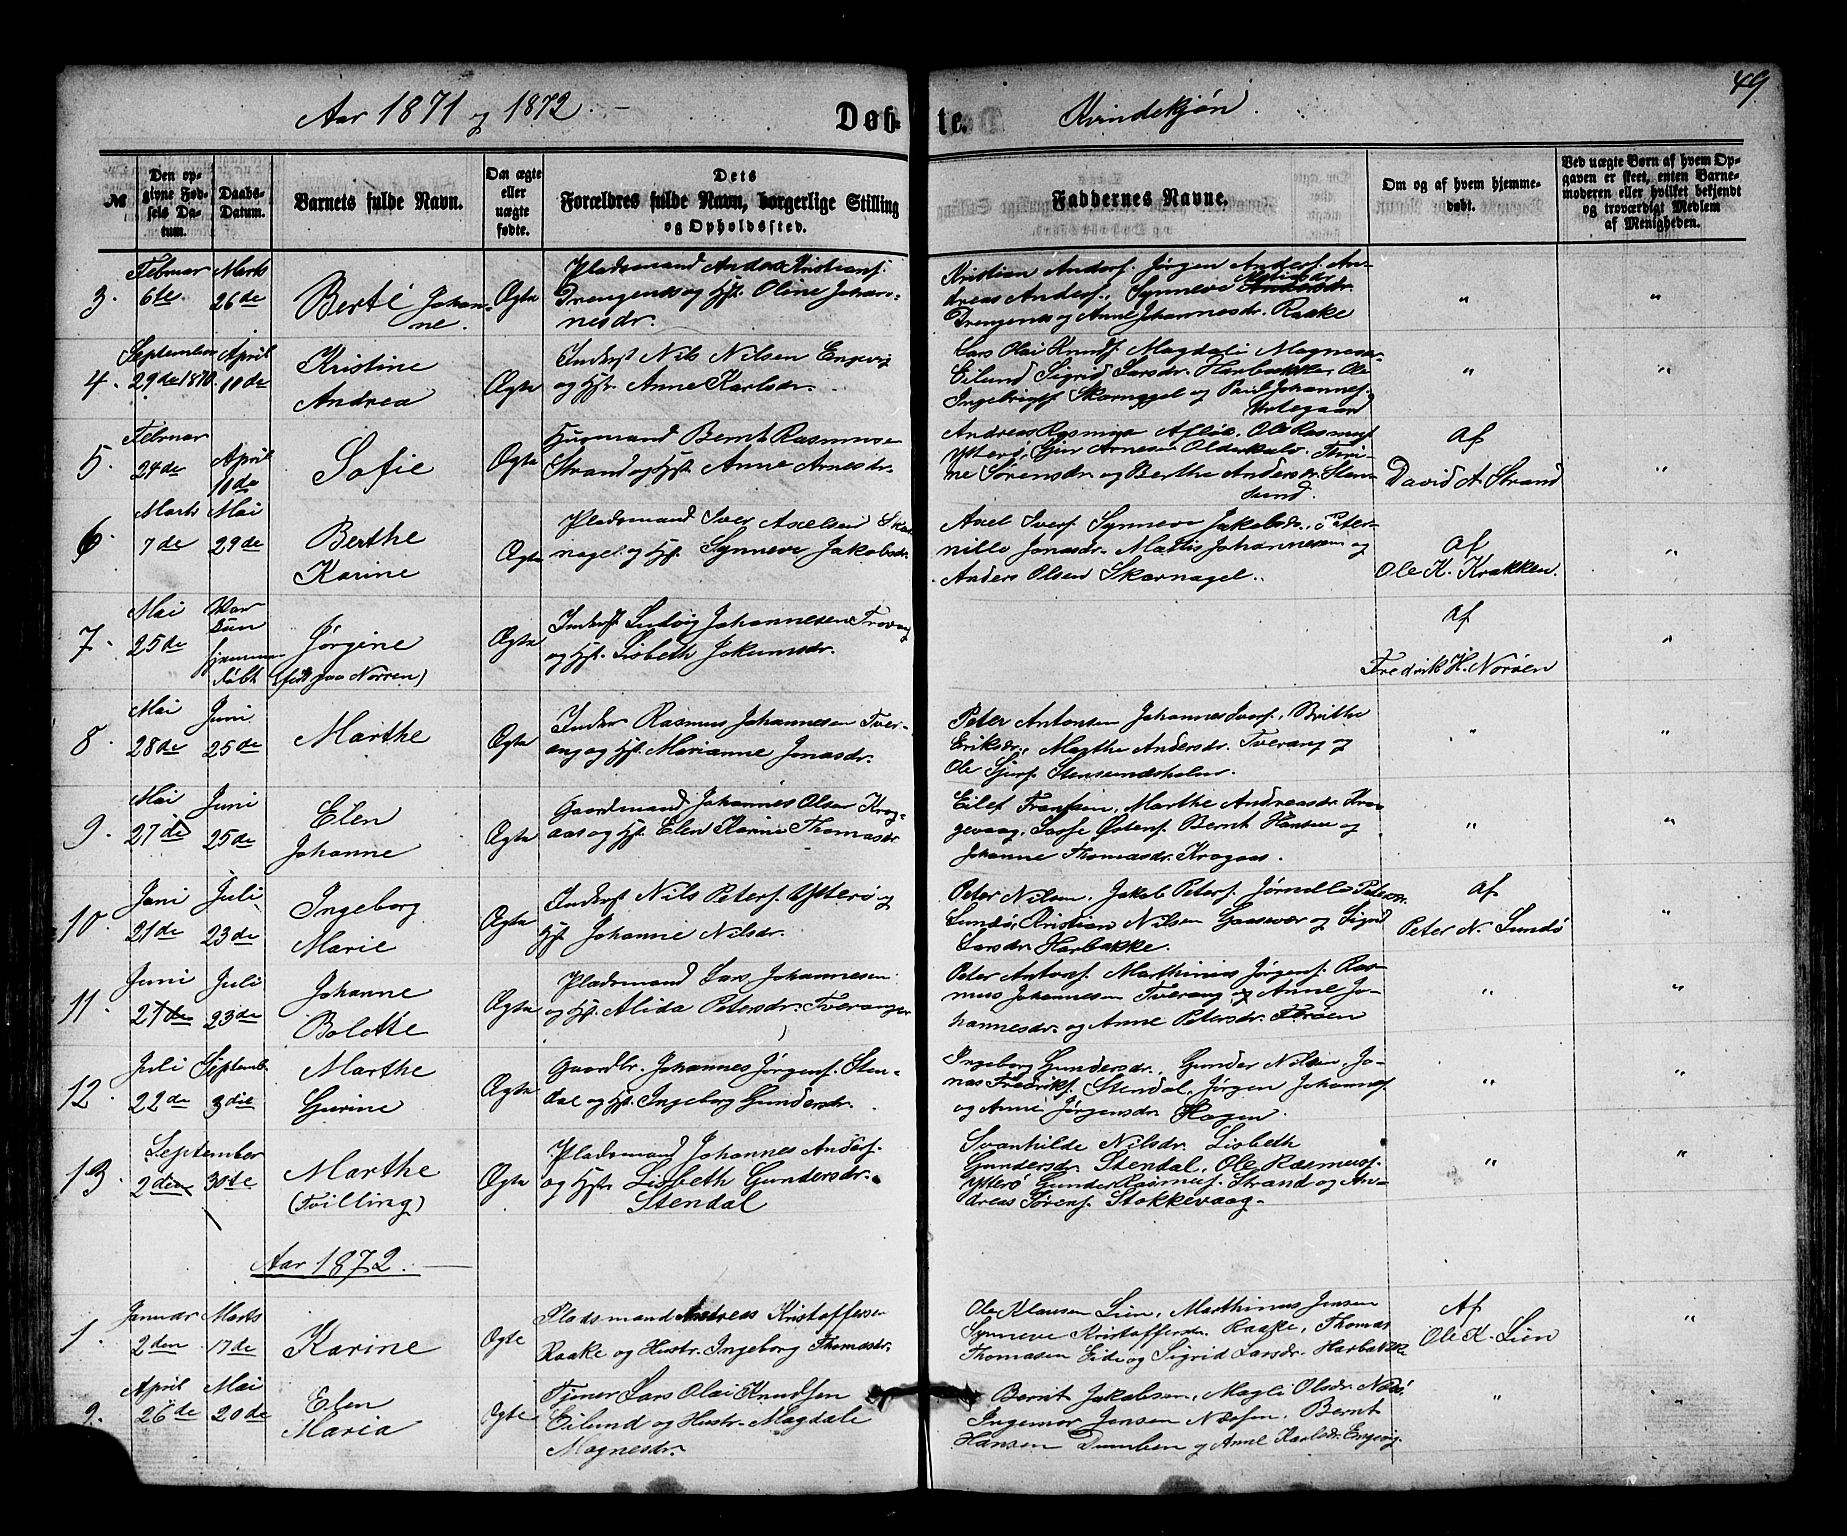 49
Aar 1871 og 1872. Døbte. Kvindekjøn.
№
Den opgivne Fødsels Datum.
Daabs-Datum.
Barnets fulde Navn.
Om ægte eller uægte fødte.
Dets Forældres fulde Navn, borgerlige Stilling og Opholdssted.
Faddernes Navne.
Om og af hvem hjemmedøbt.
Ved uægte Børn af hvem Opgaven er skeet, enten Barnemoderen eller hvilket bekjendt og troværdigt Medlem af Menigheden.
3. Februar 6te Marts 26de
Berte Johanne.
Ægte
Pladsmand Andas Kristiansf.
Drengenes og Hst. Oline Johan-
nesdr.
Kristian Andersf. Jørgen Andersf. An-
dreas Andersf., Synneve
Drengenes og Anne Johannesdr. Raake
" "
4. September 29de 1870. April 10de
Kristine
Andrea
Ægte
Inderst Nils Nilsen Engvig
og Hst. Anne Karlsdr.
Lars Olai Knudsf. Magdali Magnesdr.
Eilund Sigrid Larsdr. Harbakken, Ole
Ingebrigtsf. Skarnagel og Paul Johannesf.
" "
5. Februar 24de April 10de
Sofie
Ægte
Husmand Bernt Rasmusen
Strand og Hst. Anne Arnesdr.
Andreas Rasmus Ole Rasmusf.
Ytterø, Gjur Arnesen Olderkalv. Thri-
ne Sørensdr. og Berthe Andersdr. Sten-
sund.
af
David A. Strand
"
6. Marts 7de Mai 29de
Berthe
Karine
Ægte
Pladsmand Iver Axelsen Skar-
nagel og Hst. Synneve Jakobsdr.
Axel Iversf. Synneve Jakobsdr., Peter-
nille Jonasdr. Mattis Johannesen og
Anders Olsen Skarnagel.
af
Ole K. Krakken.
"
7. Mai 25de
Var
kun
hjemme
døbt
Jørgine
(født paa Norøen)
Ægte
Inderst Ludvig Johannesen Tverang
og Hst. Lisbeth Jokumsdr.
af
Fredrik H. Norøen
"
8. Mai 28de Juni 25de
Marthe
Ægte
Inderst Rasmus Johannesen Tver-
ang og Hst. Marianne Jonasdr.
Peter Antonsen Johannes Iversf., Brithe
Eriksdr., Magthe Andersdr. Tverang og
Ole Gjursf. Stensundsholm.
" "
9. Mai 27de Juni 25de
Elen
Johanne
Ægte
Gaardmand Johannes Olsen Krog-
aas og Hst. Elen Karine Thomasdr.
Eilef Fransen, Marthe Andreasdr. Kra-
gevaag, Lasse Østensf. Bernt Hansen og
Johanne Thomasdr. Krogaas.
" "
10. Juni 21de Juli 23de
Ingeborg
Marie
Ægte
Inderst Nils Petersf. Ytterø og
Hst. Johanne Nilsdr.
Peter Nilsen, Jakob Petersf. Jørnelle Petersdr.
Sundø, Kristian Nilsen Gaasevær og Sigrid
Larsdr. Harbakke.
af
Peter N. Sundø
"
11. Juni 27de Juli 23de
Johanne
Bolette
Ægte
Pladsmand Lars Johannesen
og Hst. Alida Petersdr. Tveranger
Peter Antonsf. Marthinus Jørgensf. Ras-
mus Johannesen Tverang og Anne Jo-
hannesdr. og Anne Petersdr.
" "
12. Juli 22de Septemb. 3die
Marthe
Gurine
Ægte
Gaardbr. Johannes Jørgensf. Sten-
dal og Hst. Ingeborg Gundersdr.
Ingeborg Gundersdr., Gunder Nilsen, Jo-
nas Fredriksf. Stendal, Jørgen Johannesf.
og Anne Jørgensdr. Skogen.
" "
13. September 2den 30te
Marthe
(Tvilling)
Ægte
Pladsmand Johannes Andersf.
og Hst. Lisbeth Gundersdr.
Stendal
Svanhilde Nilsdr. Lisbeth
Gundersdr. Stendal, Ole Rasmusf.
Ytterø Gunder Rasmusf. Strand og An-
dreas Sørensf. Stokkevaag.
" "
Aar 1872.
1. Januar 2den Marts 17de
Karine
Ægte
Pladsmand Andreas Kristoffersen
Raake og Hustr. Ingeborg Thomasdr.
Ole Klausen Lien, Marthinus Jensen
Synneve Kristoffersdr. Raake, Thomas
Thomasen Eide og Sigrid Larsdr. Harbakke
Af
Ole K. Lien
"
2. April 26de Mai 20de
Elen
Maria
Ægte
Tjener Lars Olai Knudsen
Eilund og Hustr. Magdale
Magnesdr.
Bernt Jakobsen, Magli Olsdr.
Ingemor Jensen Bernt
Hansen Dumben og Anne Karlsdr. Engvig.
" "